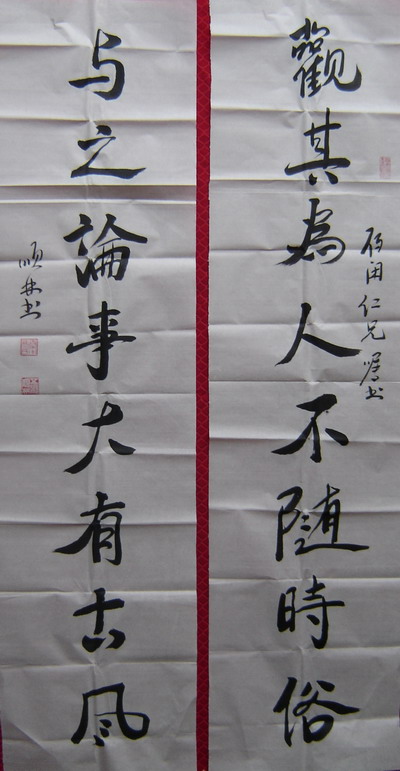 觀其為人不隨時俗
仁兄
与之論事大有古風
順林书